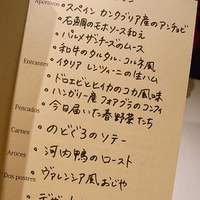 Aperitivos
・スペイン カンタブリア産のアンチョビ
・石鯛のモホソース和え
・パルメザンチーズのムース
・和牛のタルタル・コルネ風
Entrantes
・イタリア レンツィーニの生ハム
・ドロエビとヒイカのコカ風味
・ハンガリー産フォアグラのコンフィ
・今日届いた春野菜たち
Pescados
・のどぐろのソテー
Carnes
・河内鴨のロースト
Arroces
・ヴァレンシア風おじや
Dos postres